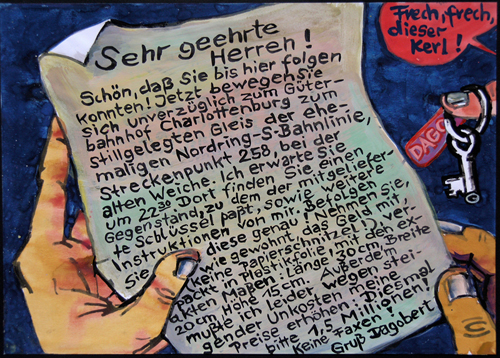 Sehr geehrte
Herren!
Schön, daß Sie bis hier folgen
konnten! Jetzt bewegen Sie
sich unverzüglich zum Güter-
bahnhof Charlottenburg zum
stillgelegten Gleis der ehe-
maligen Nordring-S-Bahnlinie,
Streckenpunkt 258, bei der
alten Weiche. Ich erwarte Sie
um 22³⁰ Dort finden Sie einen
Gegenstand, zu dem der mitgeliefer-
te Schlüssel paßt, sowie weitere
Instruktionen von mir. Befolgen
Sie diese genau! Nehmen Sie,
wie gewohnt das Geld mit,
keine Papierschnitzel, ver-
packt in Plastikfolie mit den ex-
akten Maßen: Länge 30 cm, Breite
20 cm, Höhe 15 cm. Außerdem
mußte ich leider wegen stei-
gender Unkosten meine
Preise erhöhen: Diesmal
bitte 1,5 Millionen!
Keine Faxen!
Gruß Dagobert
Frech, frech,
dieser
Kerl!
DAGO